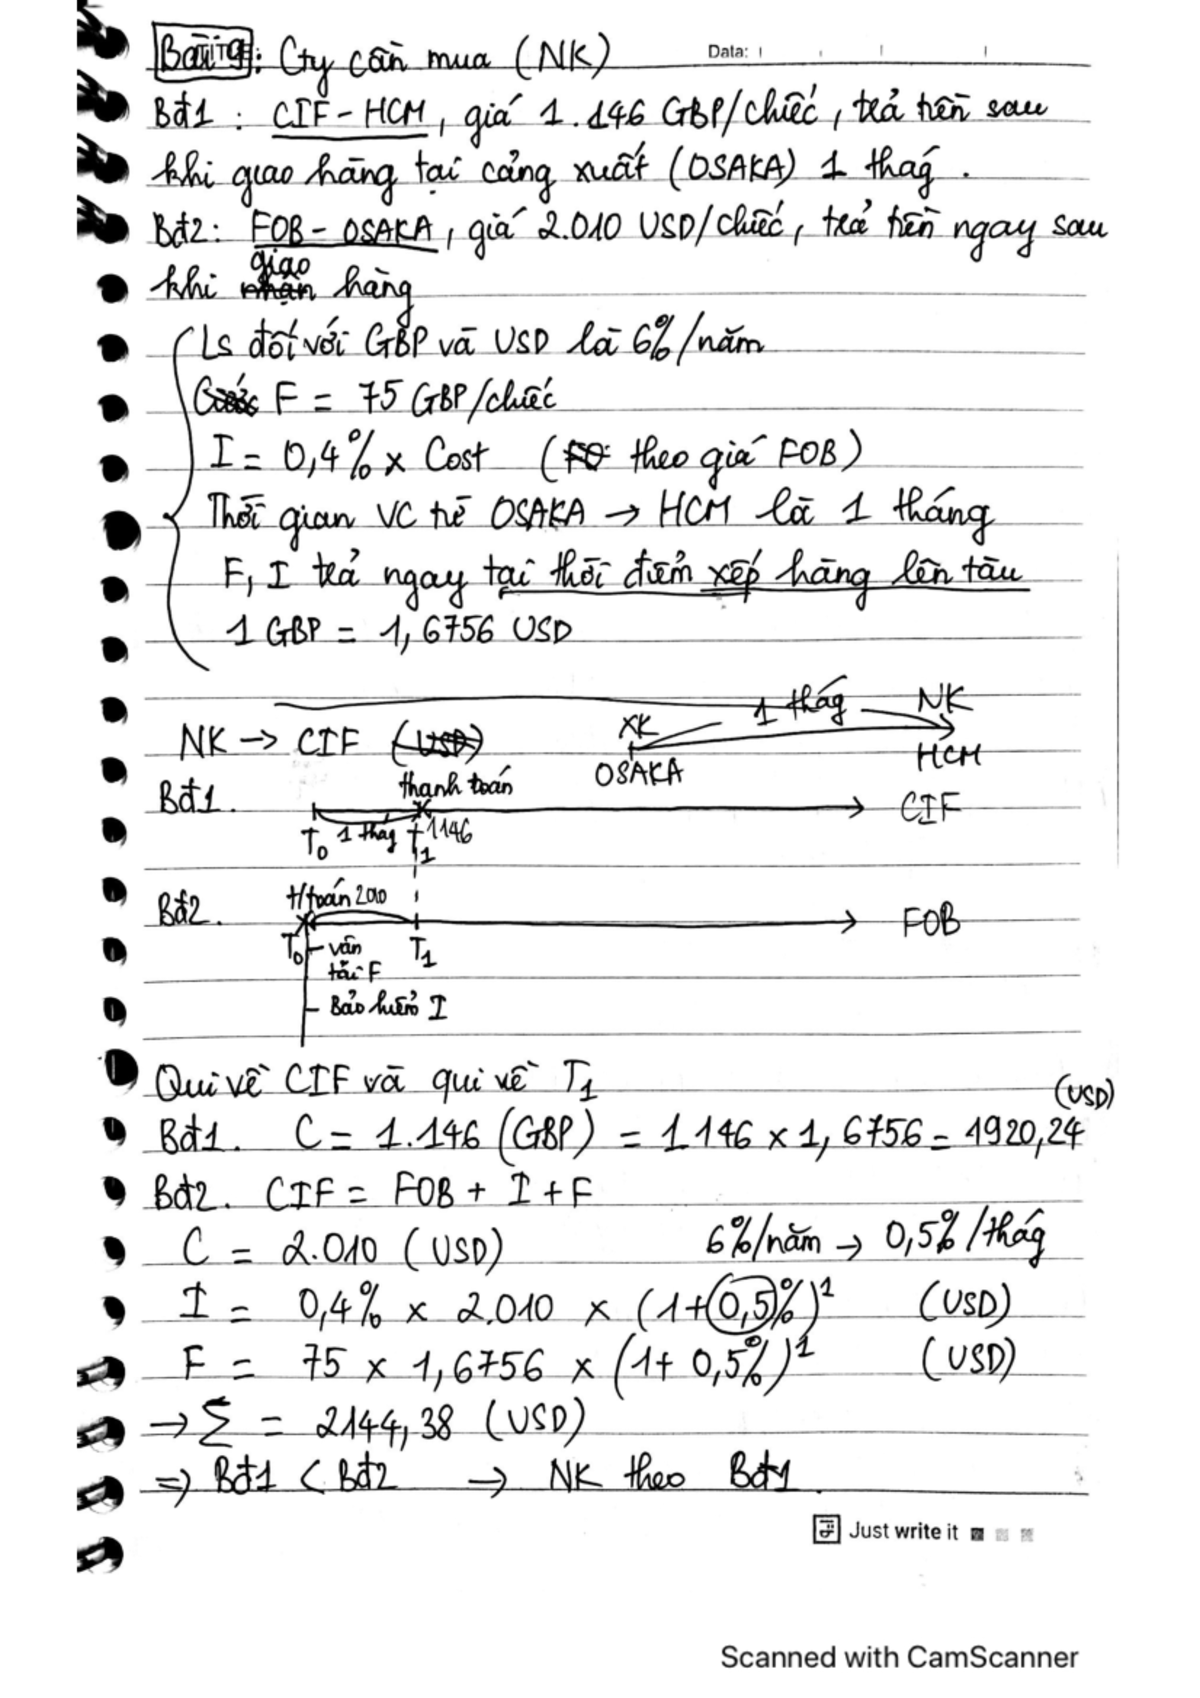 Bài 9: Cty cần mua (NK) Data:
Bđ1 : CIF - HCM, giá 1.146 GBP/chiếc, trả tiền sau
khi giao hàng tại cảng xuất (OSAKA) 1 thág.
Bđ2: FOB - OSAKA, giá 2.010 USD/chiếc, trả tiền ngay sau
giao
khi nhận hàng
Ls đối với GBP và USD là 6%/năm
Cước F = 75 GBP/chiếc
I = 0,4% x Cost (FO theo giá FOB)
Thời gian VC từ OSAKA → HCM là 1 tháng
F, I trả ngay tại thời điểm xếp hàng lên tàu
1 GBP = 1,6756 USD
NK → CIF (USD) XK 1 thág NK
OSAKA HCM
Bđ1. thanh toán CIF
T0 1 thág T1 1146
Bđ2. t/toán 2010 FOB
T0 - vận T1
tải F
- Bảo hiểm I
Qui về CIF và qui về T1
(USD)
Bđ1. C = 1.146 (GBP) = 1.146 x 1,6756 = 1920,24
Bđ2. CIF = FOB + I + F
C = 2.010 (USD) 6%/năm → 0,5%/thág
I = 0,4% x 2.010 x (1+0,5%)^1 (USD)
F = 75 x 1,6756 x (1+ 0,5%)^1 (USD)
→ Σ = 2144,38 (USD)
=> Bđ1 < Bđ2 → NK theo Bđ1.
Just write it
Scanned with CamScanner